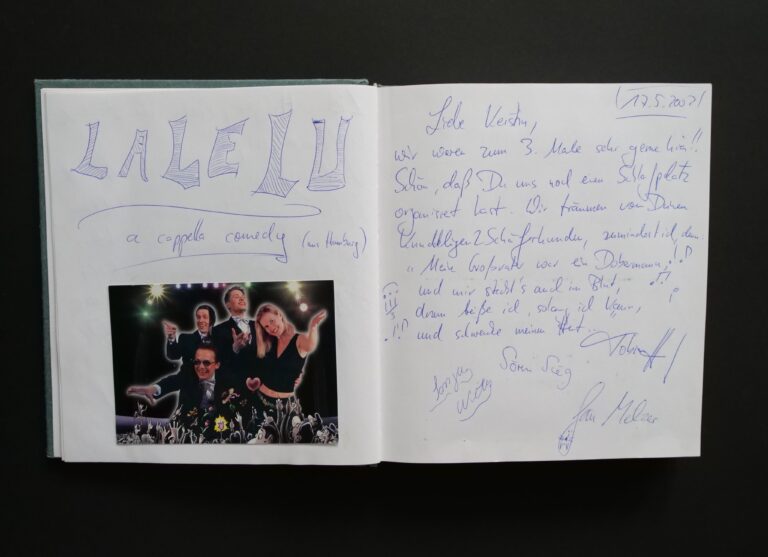 LALELU
a cappella comedy (aus Hamburg)
17.5.2002
Liebe Kerstin,
wir waren zum 3. Male sehr gerne hier!!
Schön, daß Du uns noch einen Schlafplatz
organisiert hast. Wir träumen von Deinen
Schäferhunden, zumindest ich, denn
"Meine Großvater war ein Dobermann
und mir steckt's auch im Blut
drum beiße ich, solang ich kann,
und schwenke meinen Hut...
Tobias
Sören Sieg
Sonja
Jan Melzer